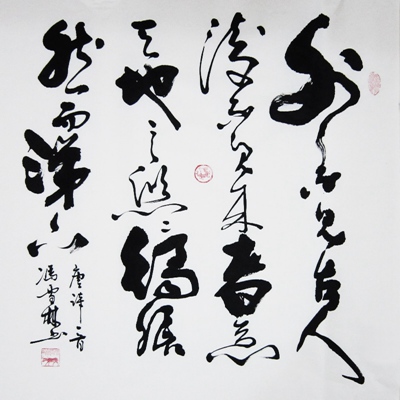 前不見古人
後不見来者念
天地之悠々獨愴
然而涕下
唐詩一首